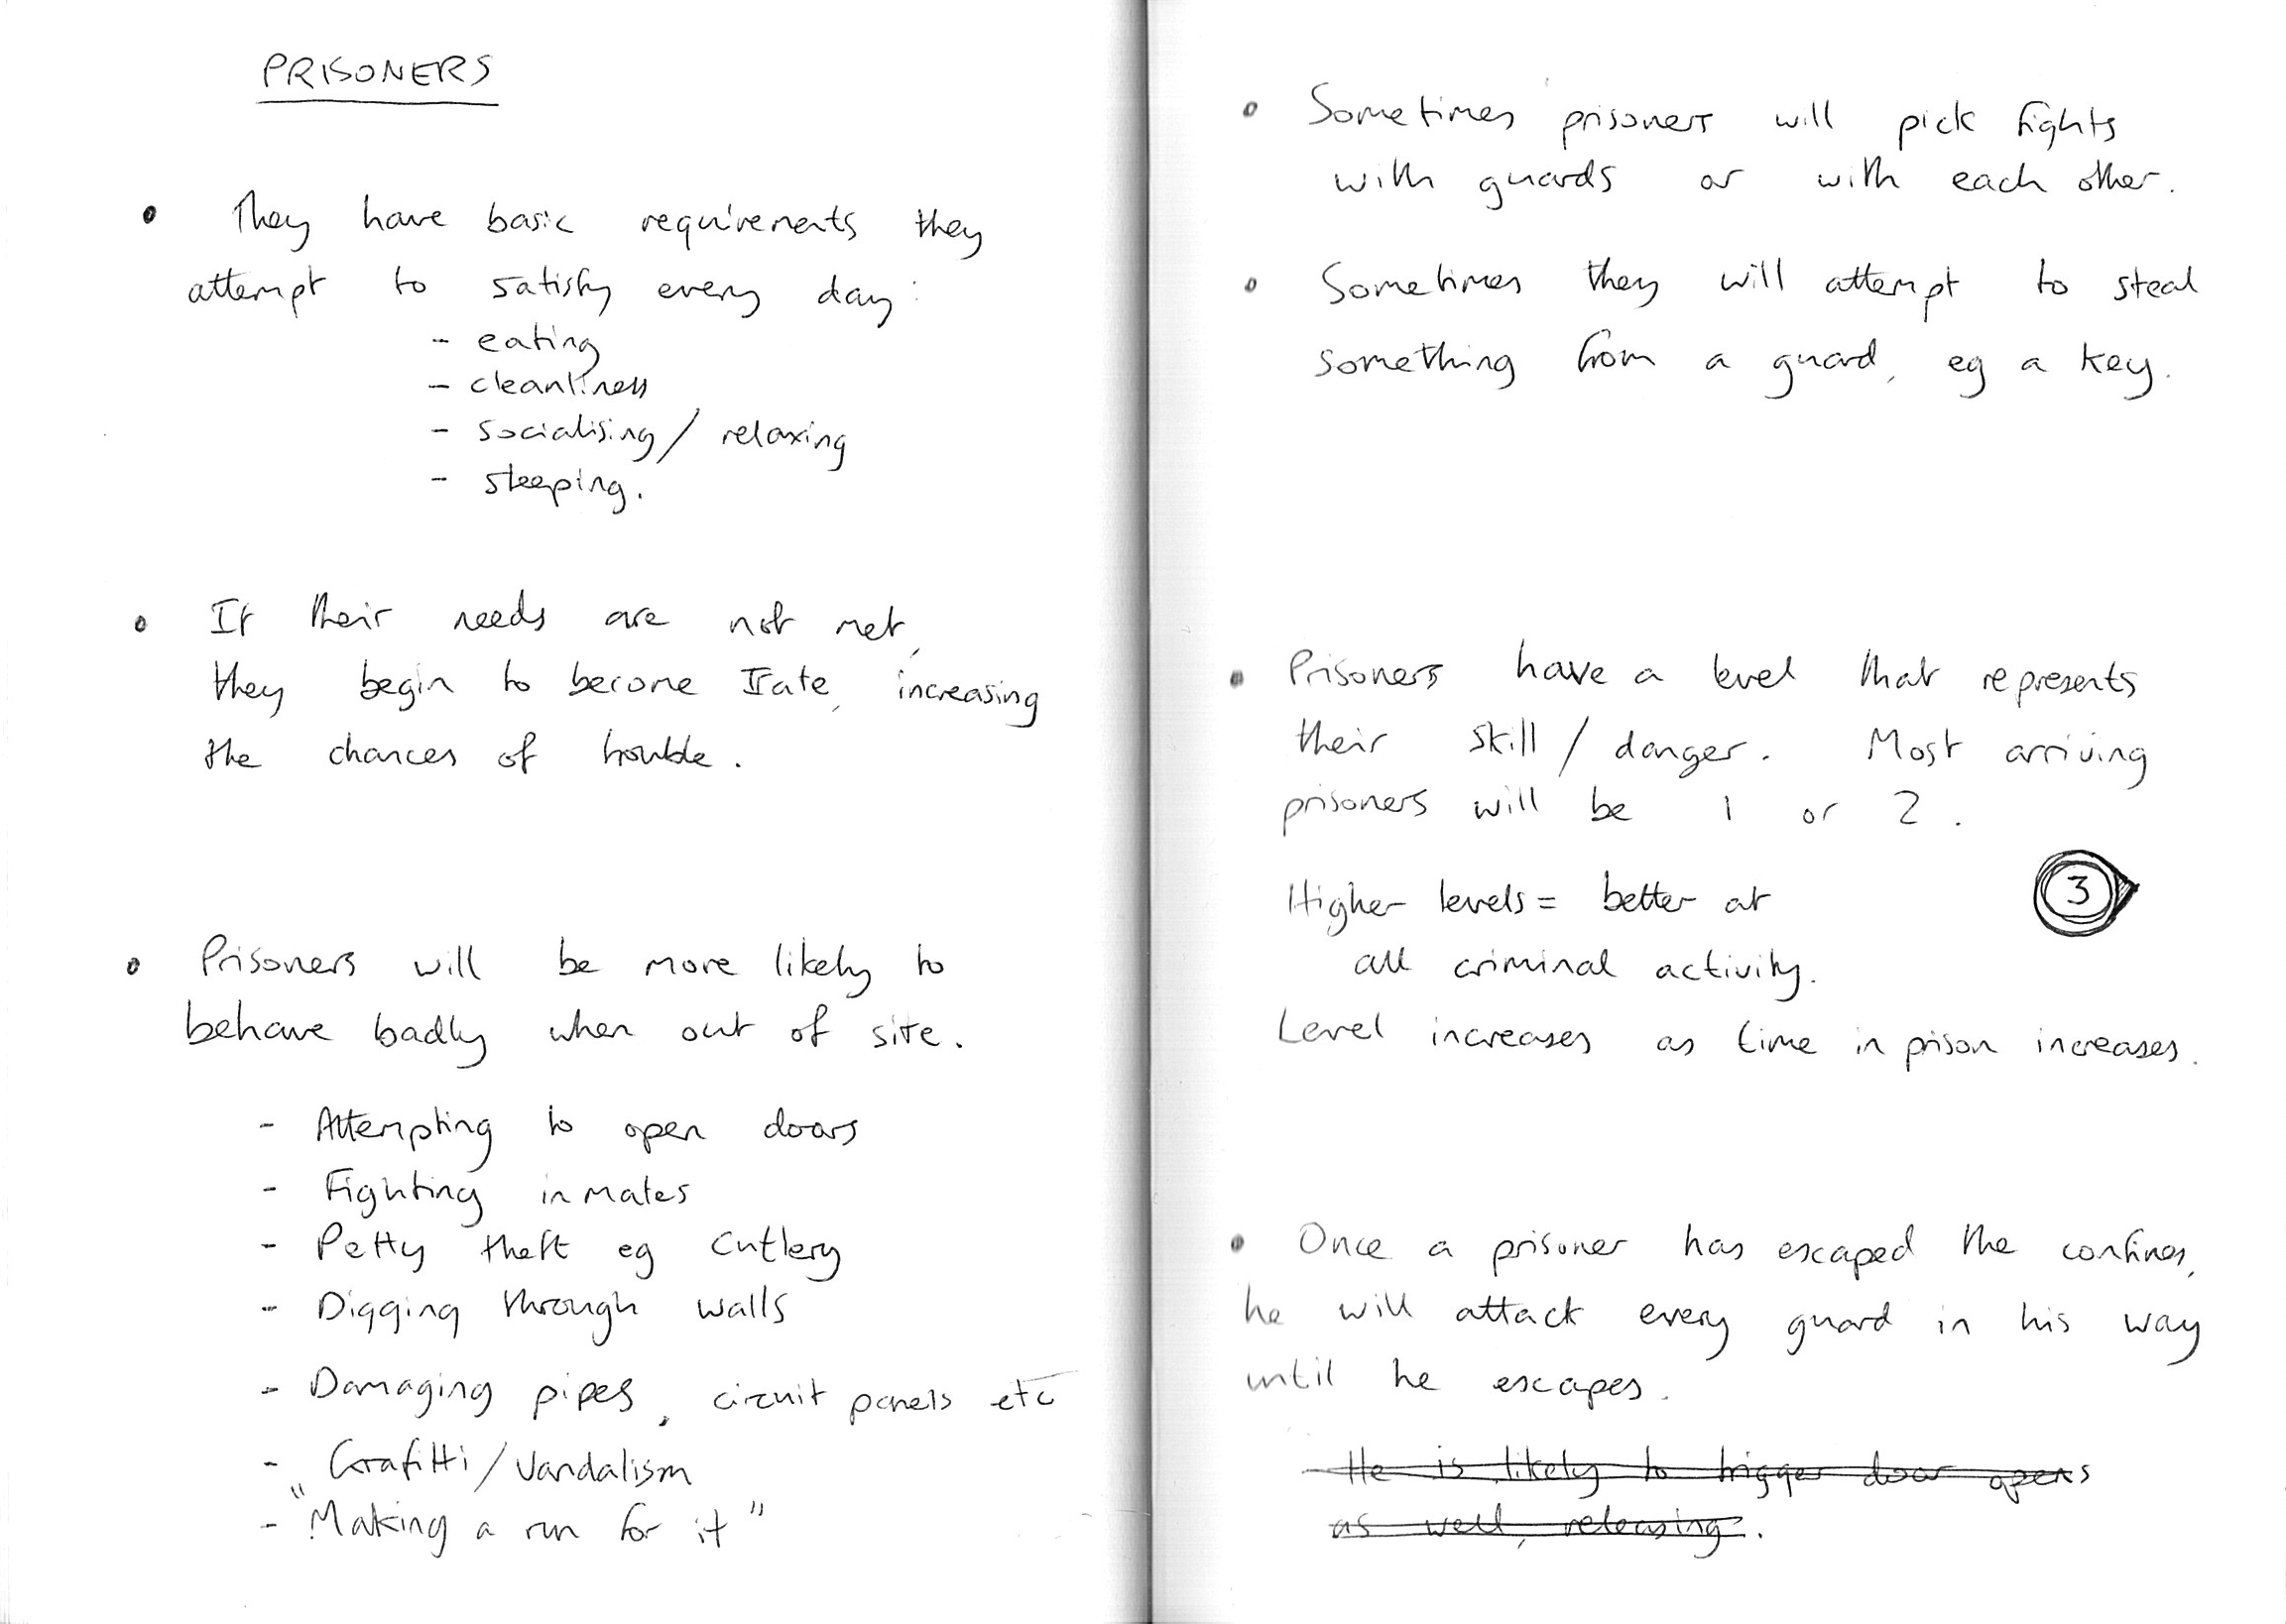 PRISONERS
• They have basic requirements they
attempt to satisfy every day:
- eating
- cleanliness
- socialising / relaxing
- sleeping.
• If their needs are not met,
they begin to become Irate, increasing
the chances of trouble.
• Prisoners will be more likely to
behave badly when out of site.
- Attempting to open doors
- Fighting inmates
- Petty theft eg Cutlery
- Digging through walls
- Damaging pipes, circuit panels etc
- Grafitti / Vandalism
- "Making a run for it"
• Sometimes prisoners will pick fights
with guards or with each other.
• Sometimes they will attempt to steal
something from a guard, eg a key.
• Prisoners have a level that represents
their skill / danger. Most arriving
prisoners will be 1 or 2.
3
Higher levels = better at
all criminal activity.
Level increases as time in prison increases.
• Once a prisoner has escaped the confines,
he will attack every guard in his way
until he escapes.
He is likely to trigger door opens
as well, releasing.